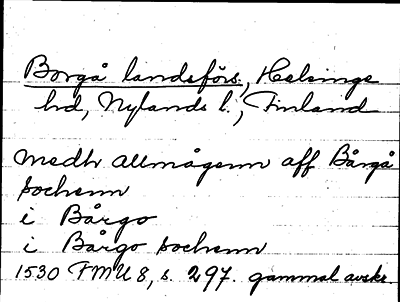 Borgå landsförs., Helsinge
hd, Nylands l., Finland
medh allmågenn aff Bårgå
sochenn
i Bårgo
i Bårgo sochenn
1530 FMU 8, s. 297. gammal avskr.